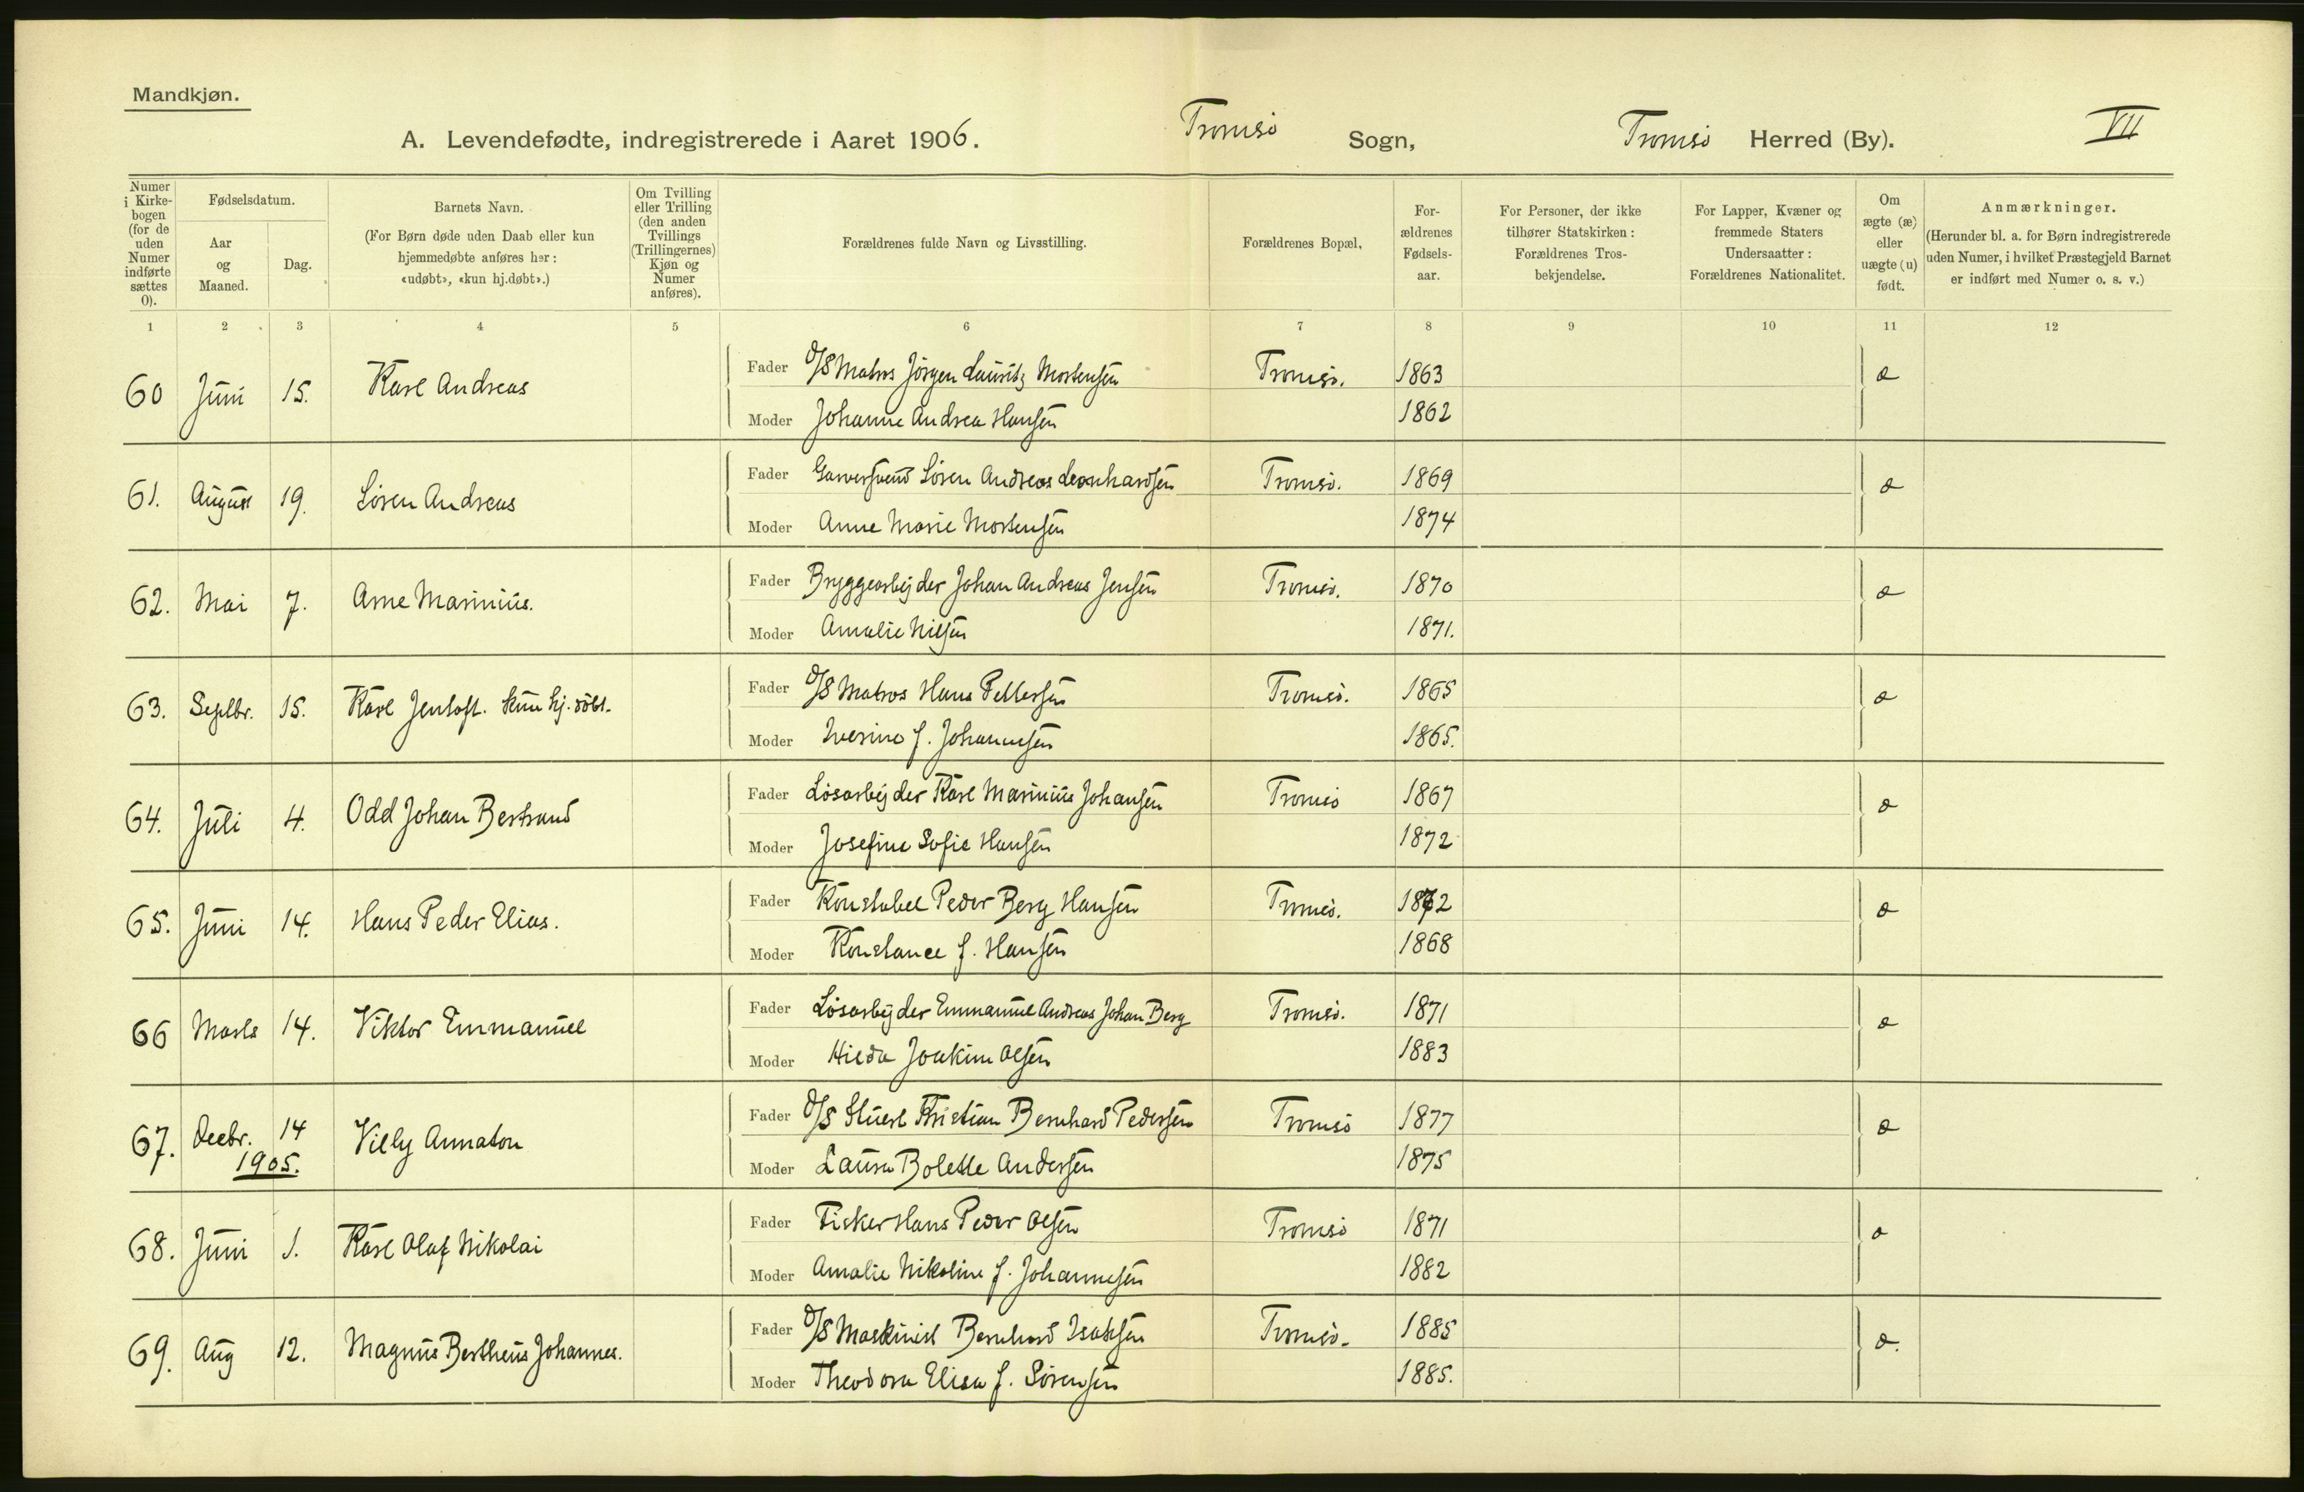 Mandkjøn.
A. Levendefødte, indregistrerede i Aaret 1906. Tromsø Sogn, Tromsø Herred (By). VII
Numer i Kirkebogen (for de uden Numer indførte sættes 0).
Fødselsdatum.
Aar og Maaned.
Dag.
Barnets Navn.
(For Børn døde uden Daab eller kun hjemmedøbte anføres her: «udøbt», «kun hj.døbt».)
Om Tvilling eller Trilling (den anden Tvillings (Trillingernes) Kjøn og Numer anføres).
Forældrenes fulde Navn og Livsstilling.
Forældrenes Bopæl,
Forældrenes Fødselsaar.
For Personer, der ikke tilhører Statskirken: Forældrenes Trosbekjendelse.
For Lapper, Kvæner og fremmede Staters Undersaatter: Forældrenes Nationalitet.
Om ægte (æ) eller uægte (u) født.
Anmærkninger.
(Herunder bl. a. for Børn indregistrerede uden Numer, i hvilket Præstegjeld Barnet er indført med Numer o. s. v.)
1 2 3 4 5 6 7 8 9 10 11 12
60 Juni 15. Karl Andreas Fader D/S Matros Jørgen Lauritz Mortensen Tromsø. 1863 æ
Moder Johanne Andrea Hansen 1862
61. August 19. Søren Andreas Fader Garversvend Søren Andreas Leonhardsen Tromsø. 1869 æ
Moder Anne Marie Mortensen 1874
62. Mai 7. Arne Marinius. Fader Bryggearbejder Johan Andreas Jensen Tromsø. 1870 æ
Moder Amalie Nilsen 1871.
63. Septbr. 15. Karl Jentoft. kun hj.døbt. Fader D/S Matros Hans Pettersen Tromsø. 1865 æ
Moder Iverine f. Johannesen 1865.
64. Juli 4. Odd Johan Bertrand Fader Løsarbejder Karl Marinius Johansen Tromsø 1867 æ
Moder Josefine Sofie Hansen 1872
65. Juni 14. Hans Peder Elias. Fader Konstabel Peder Berg Hansen Tromsø. 1872 æ
Moder Konstance f. Hansen 1868
66 Marts 14. Viktor Emmanuel Fader Løsarbejder Emmanuel Andreas Johan Berg Tromsø. 1871 æ
Moder Hilda Joakime Olsen 1883
67. Decbr. 14 Villy Annaton Fader D/S Stuert Kristian Bernhard Pedersen Tromsø 1877 æ
1905. Moder Laura Bolette Andersen 1875
68. Juni 1. Karl Olaf Nikolai Fader Fisker Hans Peder Olsen Tromsø 1871 æ
Moder Amalie Nikoline f. Johannesen 1882
69. Aug 12. Magnus Bertheus Johannes. Fader D/S Maskinist Bernhard Isaksen Tromsø. 1885 æ.
Moder Theodora Elisa f. Sørensen 1885.